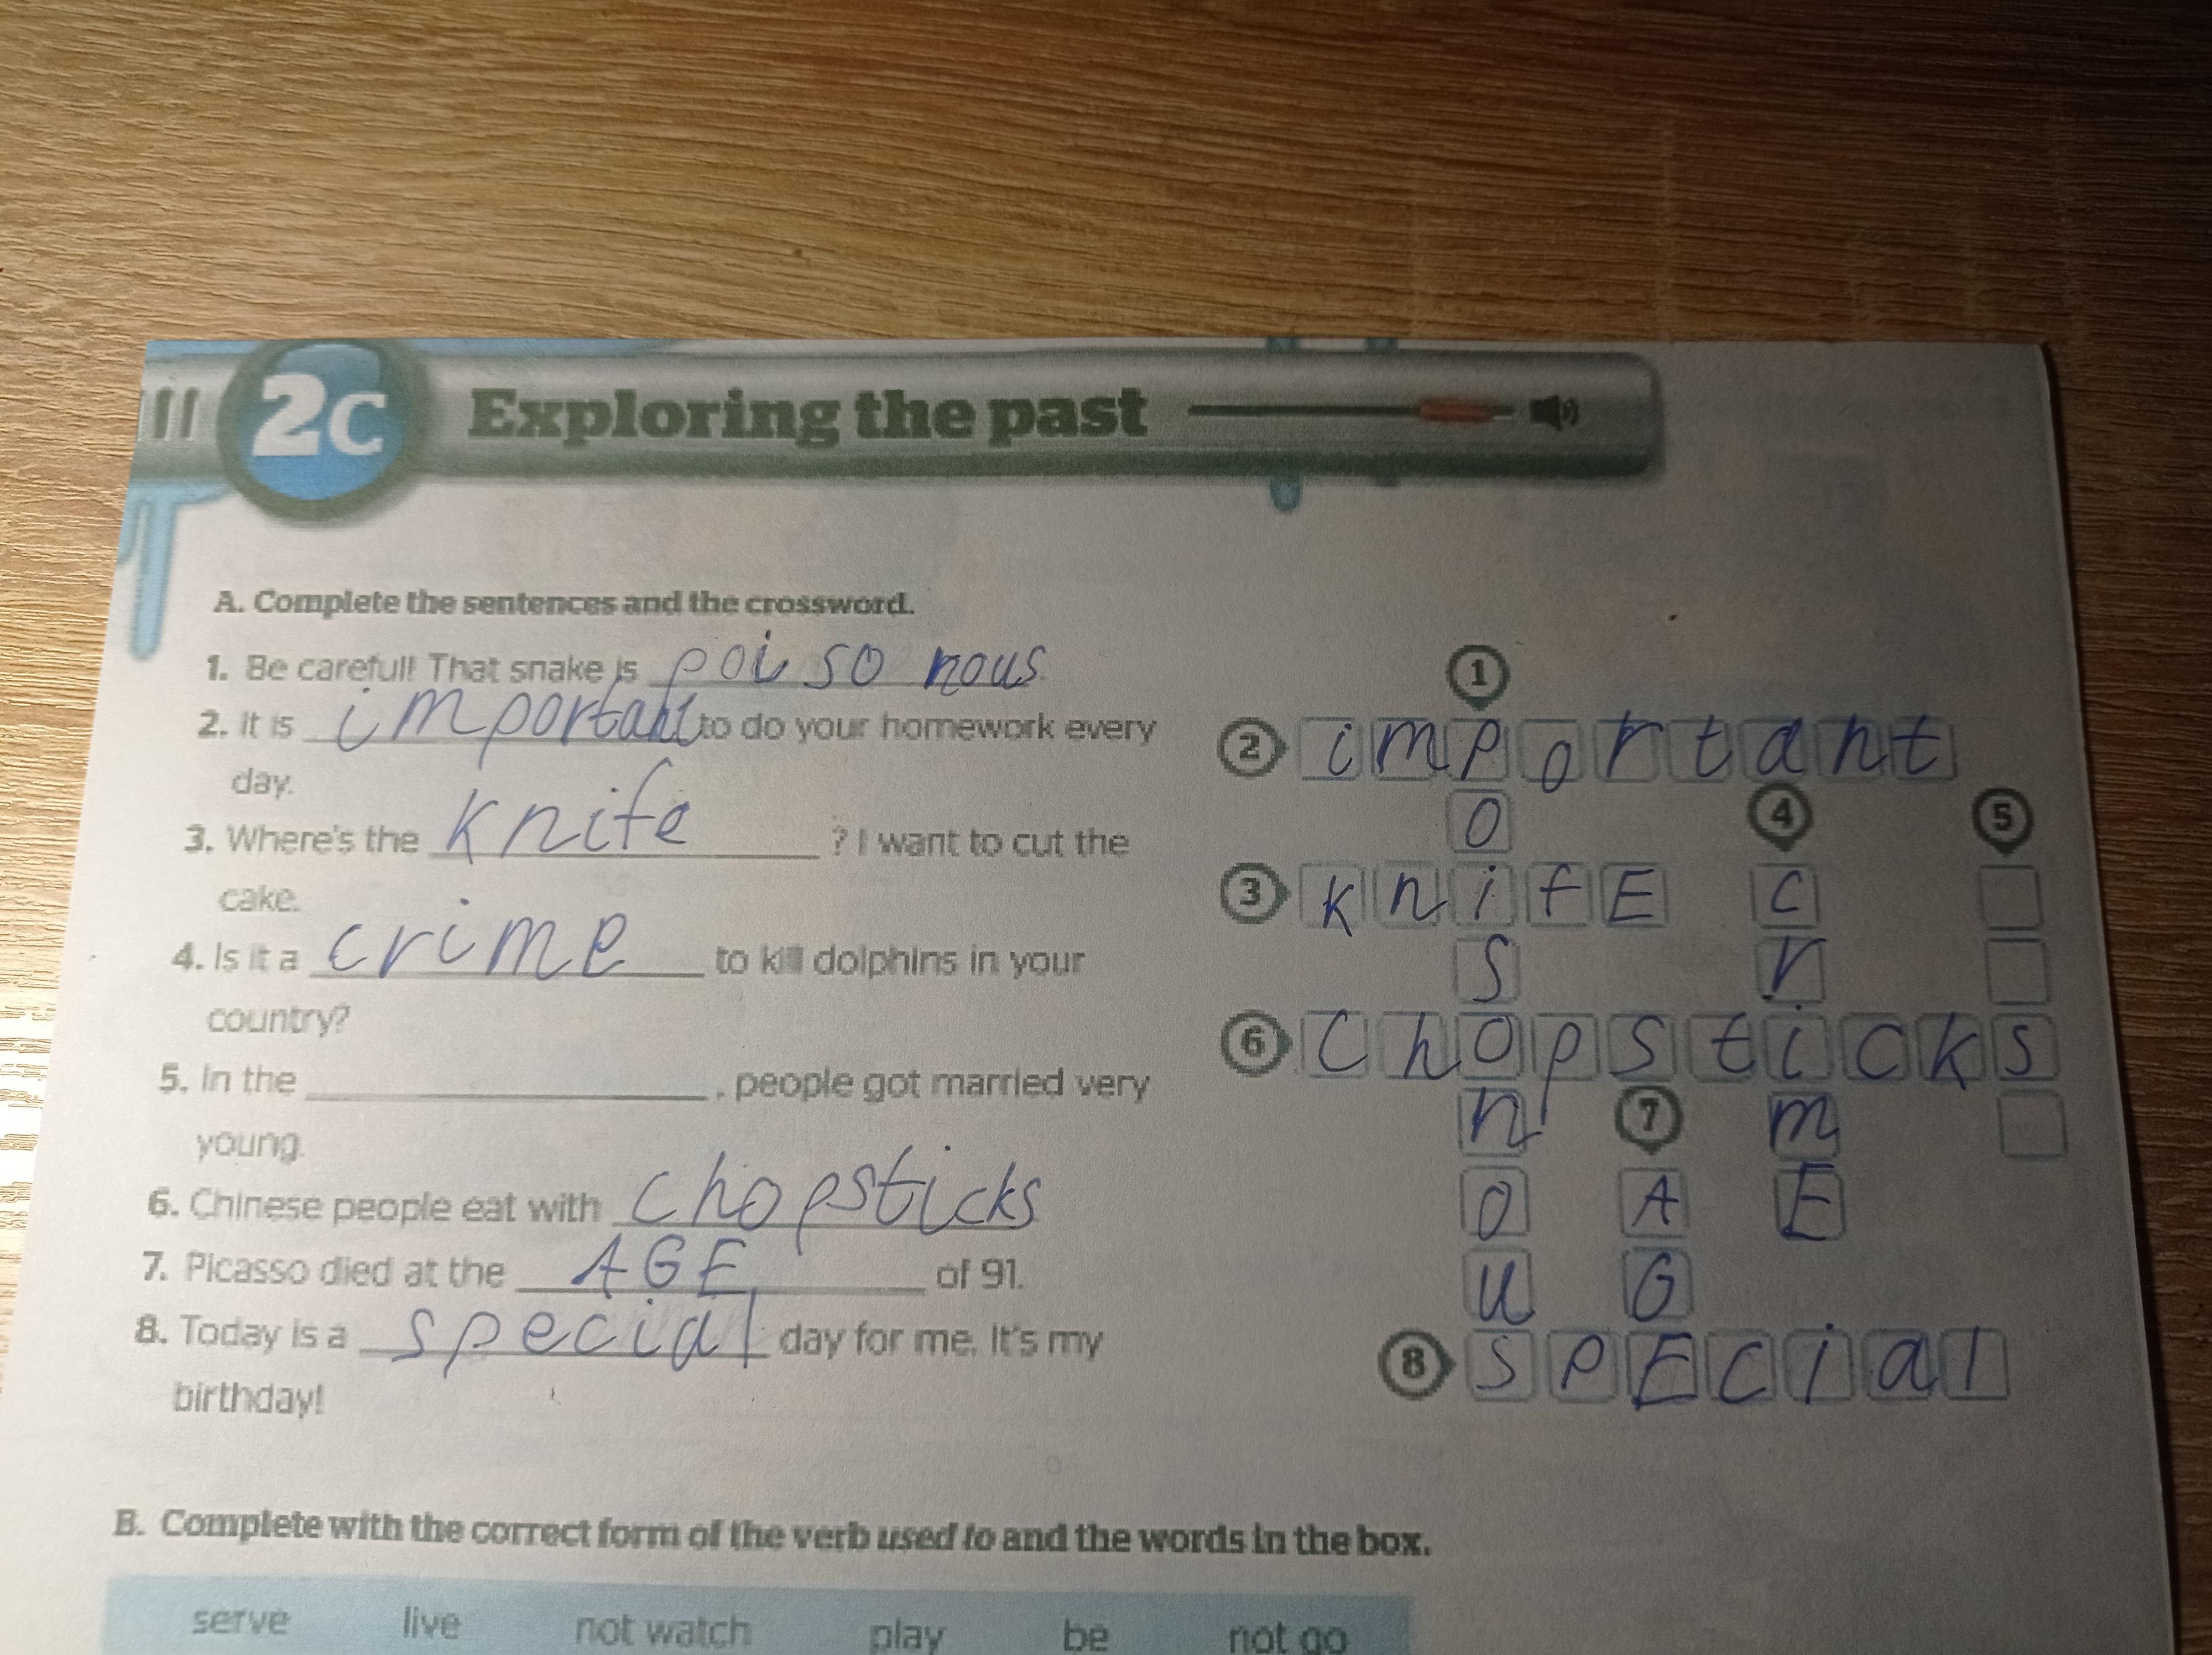 2c Exploring the past
A. Complete the sentences and the crossword.
1. Be careful! That snake is poisonous
2. It is important to do your homework every
day.
3. Where's the knife ? I want to cut the
cake.
4. Is it a crime to kill dolphins in your
country?
5. In the , people got married very
young.
6. Chinese people eat with chopsticks
7. Picasso died at the AGE of 91.
8. Today is a special day for me. It's my
birthday!
1
2 important
o 4 5
3 knifE c
s r
6 Chopsticks
n 7 m
o A E
u G
8 spEcial
B. Complete with the correct form of the verb used to and the words in the box.
serve live not watch play be not go